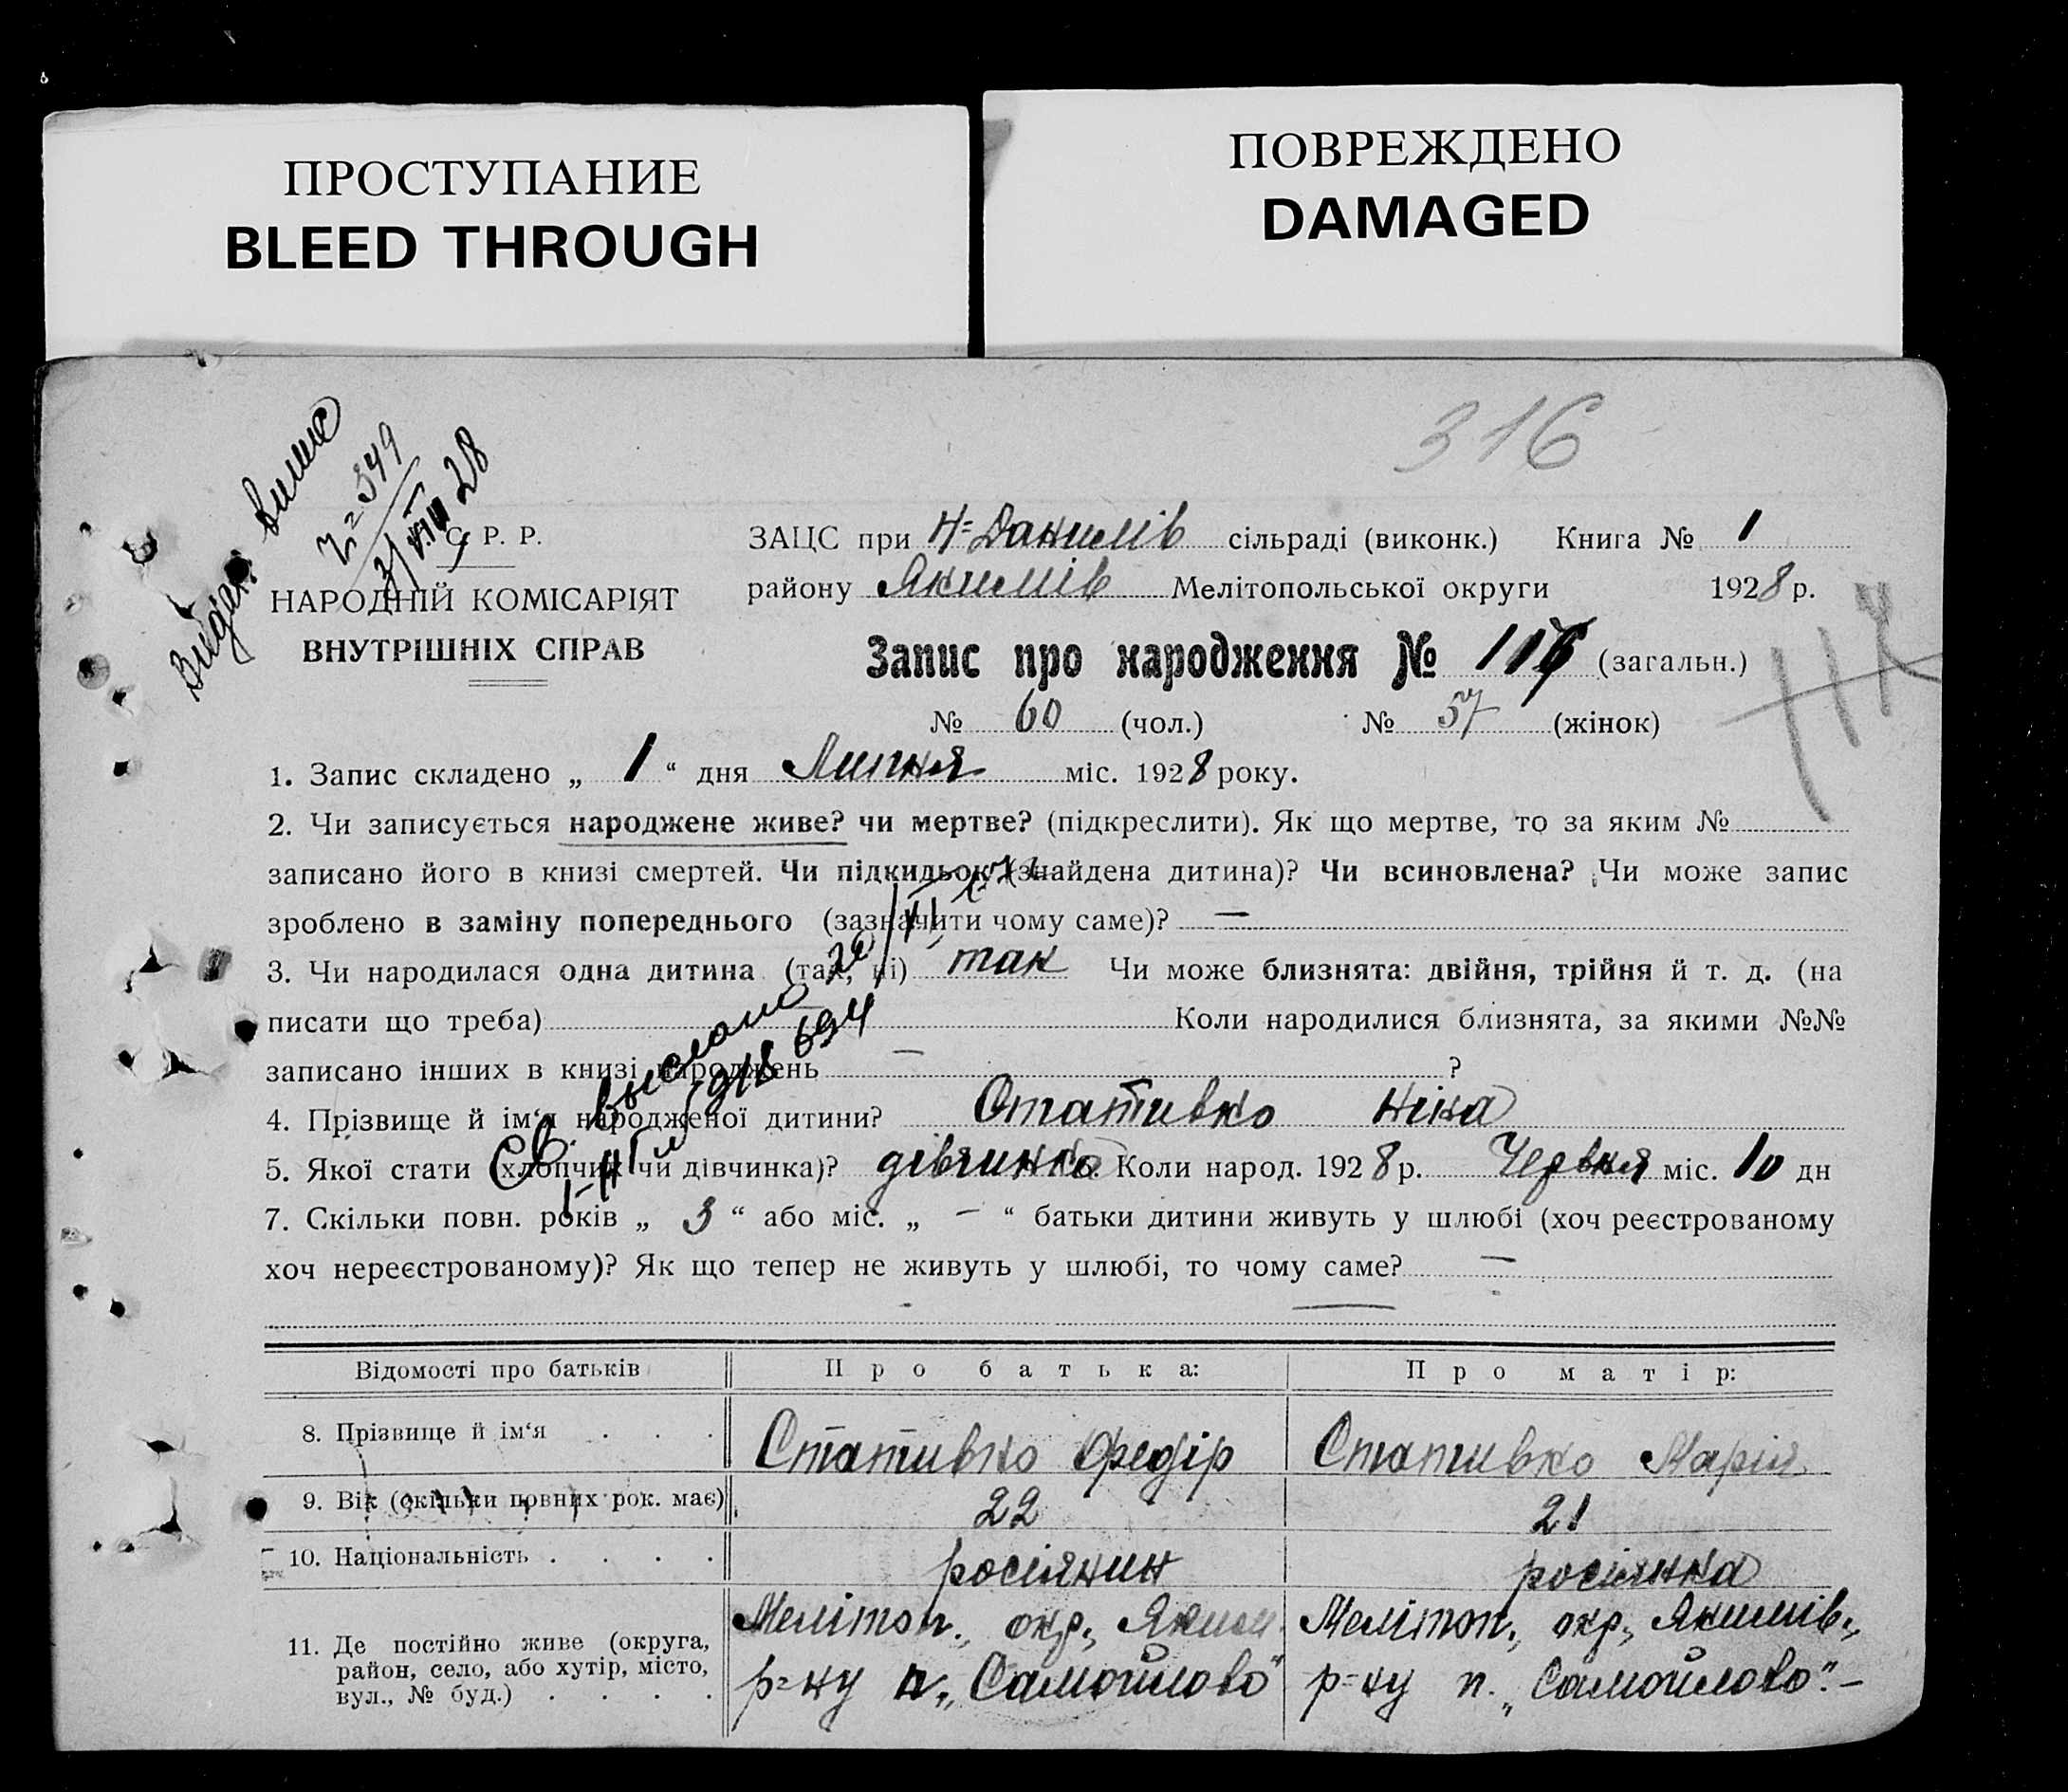 ПРОСТУПАНИЕ
BLEED THROUGH
ПОВРЕЖДЕНО
DAMAGED
316
Видан. випис
№=349
3/VIII 28
С. Р. Р.
НАРОДНІЙ КОМІСАРІЯТ
ВНУТРІШНІХ СПРАВ
ЗАЦС при Н=Данилів сільраді (виконк.) Книга № 1
району Якимів Мелітопольської округи 1928 р.
Запис про народження № (загальн.)
117
№ 60 (чол.) № 57 (жінок)
1. Запис складено „ 1 “ дня Липня міс. 1928 року.
2. Чи записується народжене живе? чи мертве? (підкреслити). Як що мертве, то за яким №
записано його в книзі смертей. Чи підкидьок (знайдена дитина)? Чи всиновлена? Чи може запис
зроблено в заміну попереднього (зазначити чому саме)? —
3. Чи народилася одна дитина (так, ні) так Чи може близнята: двійня, трійня й т. д. (на
писати що треба) Коли народилися близнята, за якими №№
записано інших в книзі народжень — ?
4. Прізвище й ім‘я народженої дитини? Стативко Ніна
5. Якої стати (хлопчик чи дівчинка)? дівчинка Коли народ. 1928 р. Червня міс. 10 дн
7. Скільки повн. років „ 3 “ або міс. „ – “ батьки дитини живуть у шлюбі (хоч реєстрованому
хоч нереєстрованому)? Як що тепер не живуть у шлюбі, то чому саме? —
Св. выслано
694
Відомості про батьків Про батька: Про матір:
8. Прізвище й ім‘я . . . Стативко Федір Стативко Марія
9. Вік (скільки повних рок. має) 22 21
10. Національність . . . . росіянин росіянка
11. Де постійно живе (округа, Мелітоп., окр., Яким. Мелітоп., окр., Якимів.,
район, село, або хутір, місто, р=ну п. „Самойлово“ р=ну п. „Самойлово“. –
вул., № буд.) . . . .